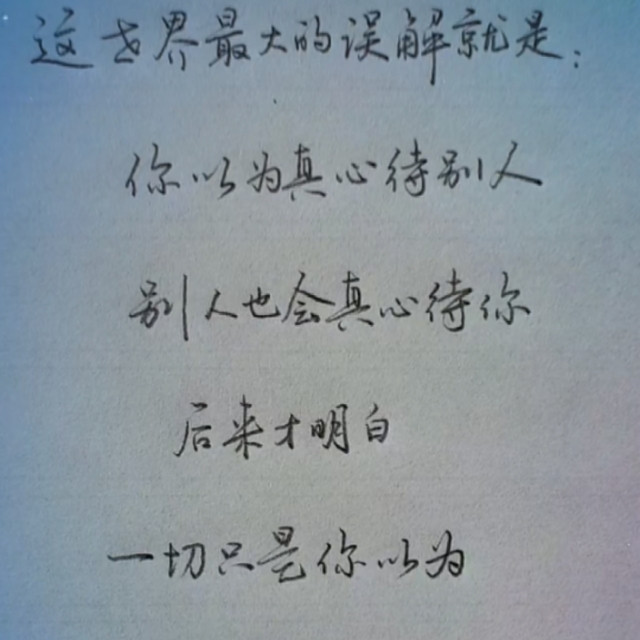 这世界最大的误解就是：
你以为真心待别人
别人也会真心待你
后来才明白
一切只是你以为